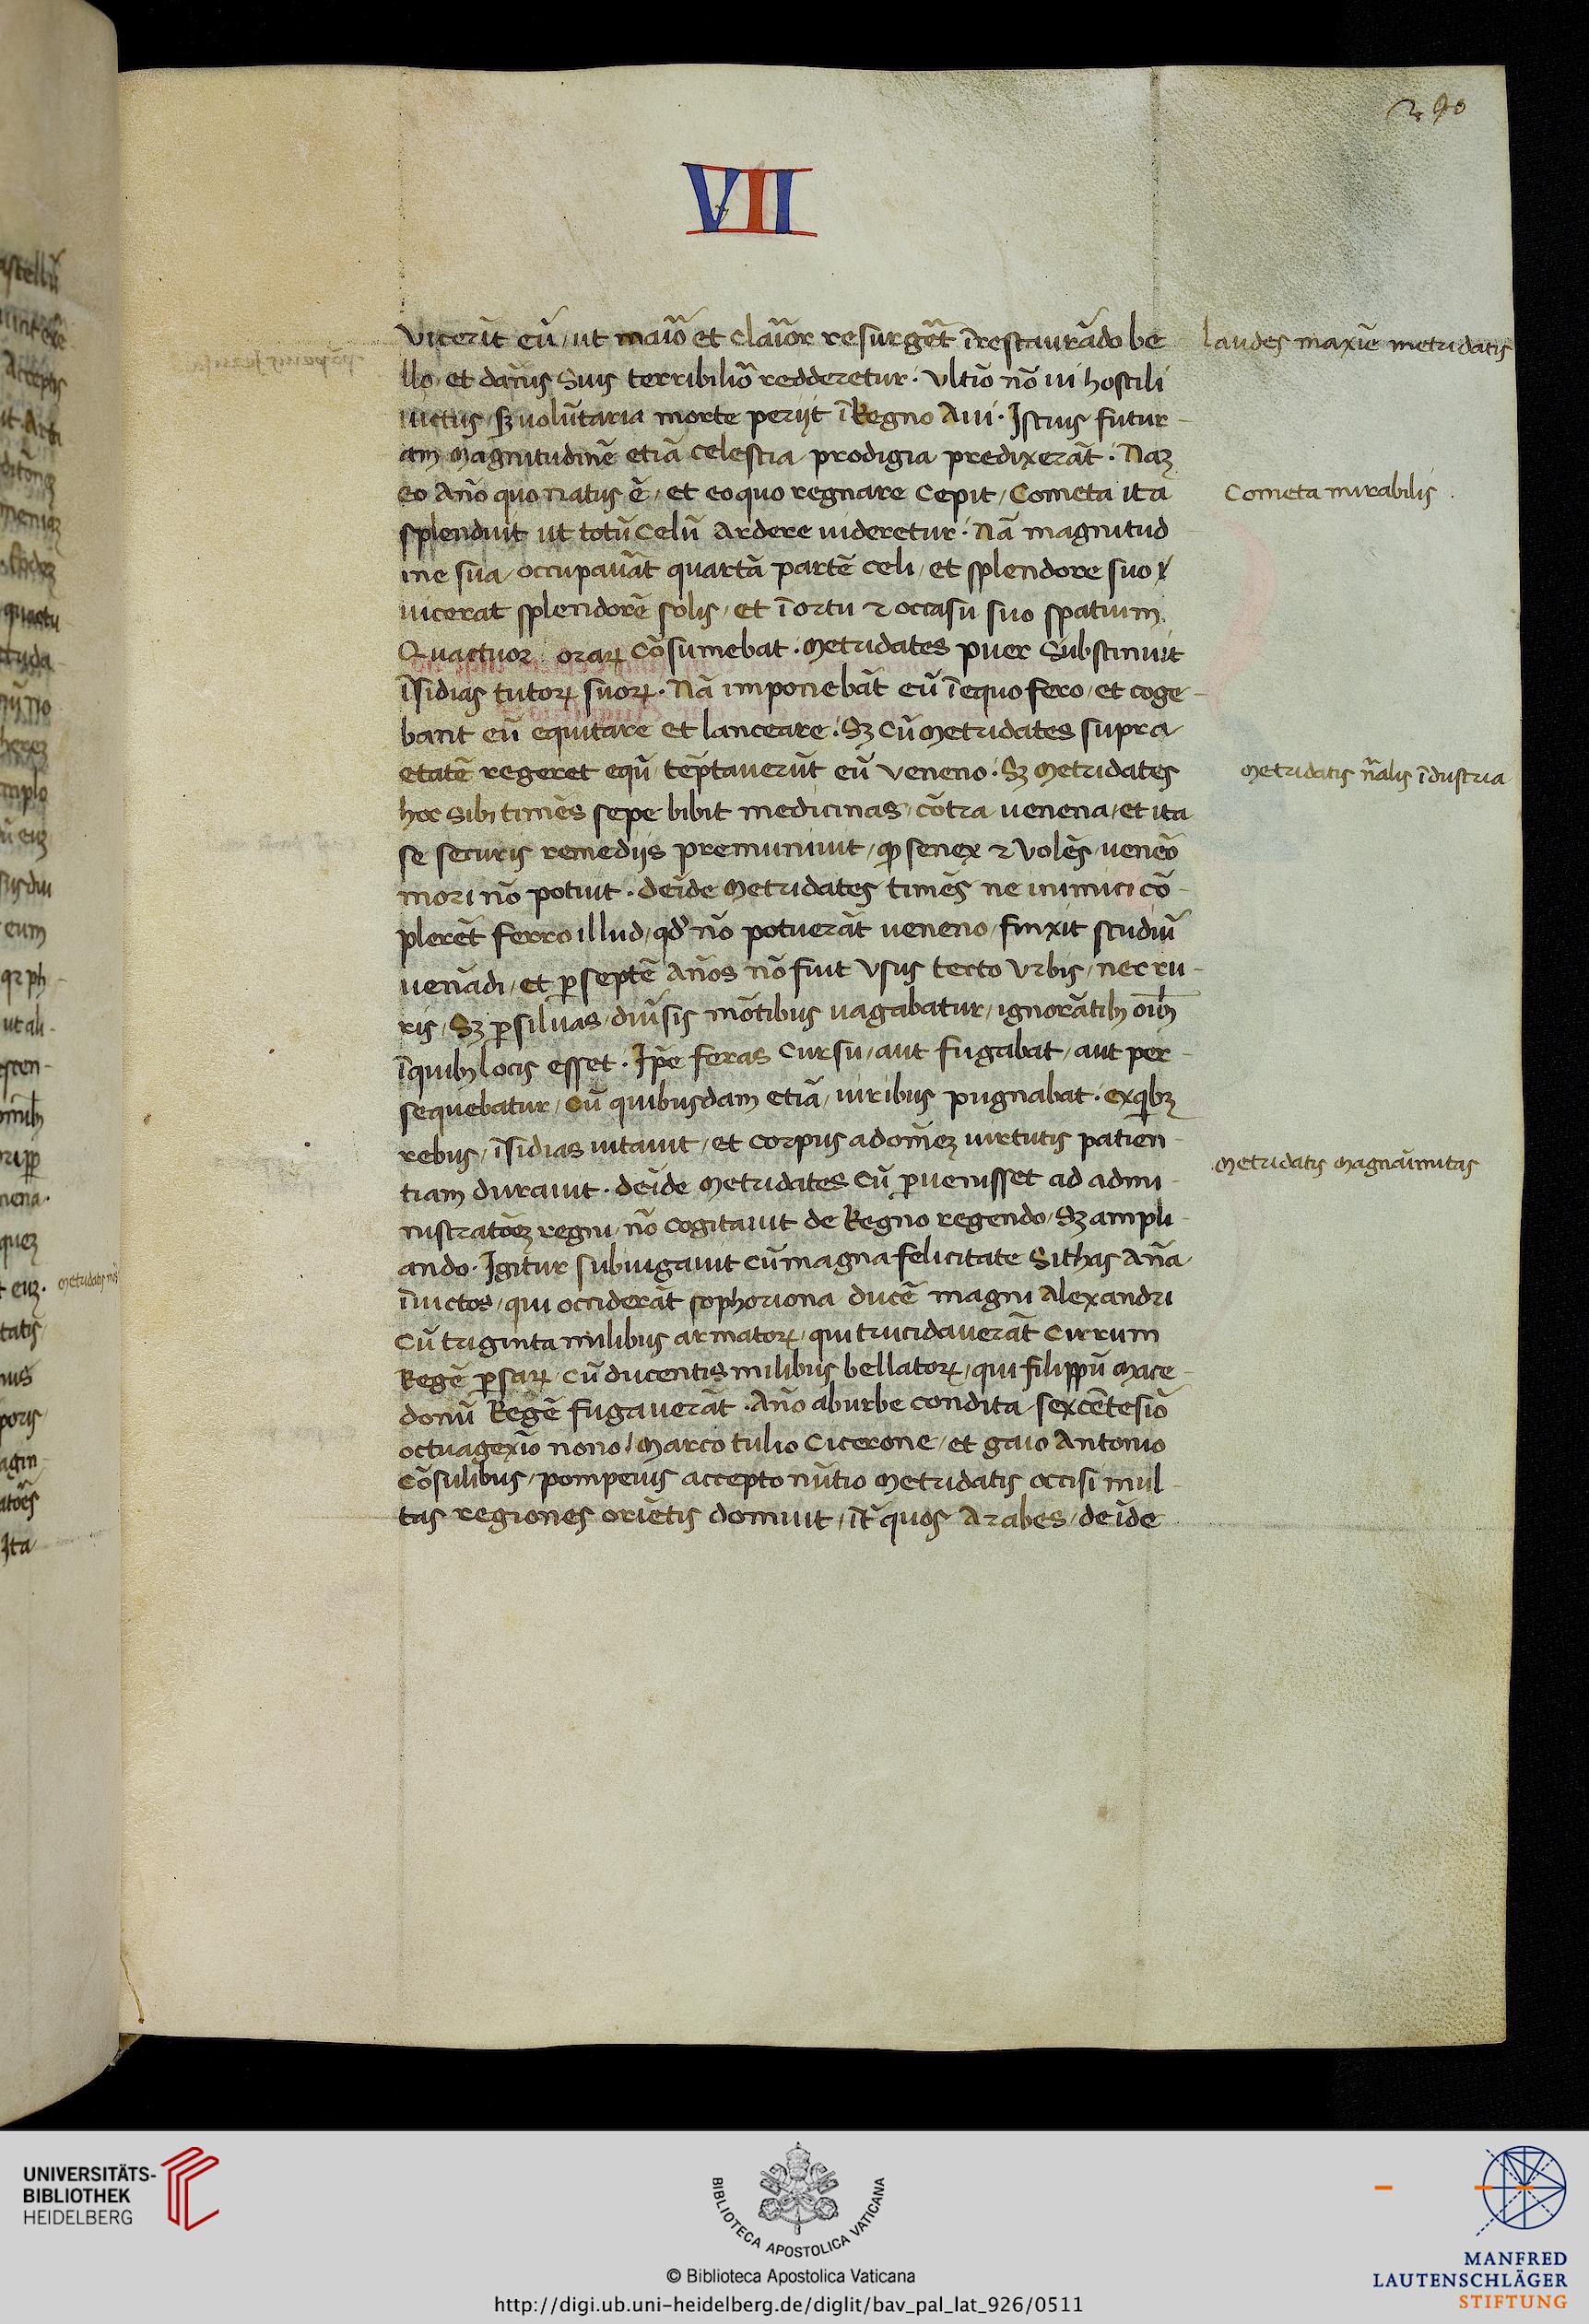 290
VII
vicerīt eū / ut maiō et claīor resurgēt īrestaurādo be
llo / et dānis suis terribiliō redderetur · ultiō nō ui hostili
uictus / sꝫ uolūtaria morte perijt ī Regno Aui · Istius futur-
am magnitudinē etiā celestia prodigia predixerāt · Naꝫ
eo Año quo natus ē / et eo quo regnare cepit / Cometa ita
splenduit ut totū Celū ardere uideretur · Nā magnitud
ine sua occupauāt quartā partē celi / et splendore suo
uicerat splendorē solis / et ī ortu ⁊ occasu suo spatium
Quactuor oraꝝ cōsumebat · Metridates puer substinuit
īsidias tutoꝝ suoꝝ · Nā imponebāt eū ī equo fero / et coge-
bant eū equitare et lanceare · Sꝫ cū Metridates supra
etatē regeret equū tēptauerūt eū veneno · Sꝫ Metridates
hoc sibi timēs sepe bibit medicinas cōtra uenena / et ita
se securis remedijs premuniuit / ꝙ senex ⁊ volēs uenēo
mori nō potuit · deīde Metridates timēs ne inimici cō-
plerēt ferro illud / qd' nō potuerāt ueneno / finxit studiū
uenādi / et ꝑ septē Años nō fuit vsus tecto vrbis / nec ru-
ris / Sꝫ ꝑ siluas / diūsis mōtibus uagabatur / ignorātibꝫ oībꝫ
ī quibꝫ locis esset · Ip̄e feras cursu / aut fugabat / aut per-
sequebatur / Cū quibusdam etiā / uiribus pugnabat · ex qibꝫ
rebus / īsidias uitauit / et corpus ad om̄eꝫ uirtutis patien-
tiam durauit · deīde Metridates Cū ꝑuenisset ad admi-
nistratōeꝫ regni / nō cogitauit de Regno regendo / Sꝫ ampli-
ando · Igitur subiugauit cū magna felicitate Sithas Añā
īuictos / qui occiderāt sophoriona ducē magni Alexandri
Cū triginta milibus armatoꝝ / qui trucidauerāt Cirrum
Regē ꝑsaꝝ / Cū ducentis milibus bellatoꝝ / qui filippū Mace-
donū Regē fugauerāt · Año ab urbe condita sexcētesiō
octuagexiō nono / Marco tulio Cicerone / et gaio Antonio
Cōsulibus / pompeius accepto nūtio Metridatis occisi mul-
tas regiones oriētis domuit / īt̄ quos Arabes / deīde
laudes maxiē metridatis
Cometa mirabilis
Metridatis n̄alis īdustria
Metridatis Magnaīmitas
UNIVERSITÄTS-
BIBLIOTHEK
HEIDELBERG
BIBLIOTECA APOSTOLICA VATICANA
© Biblioteca Apostolica Vaticana
http://digi.ub.uni-heidelberg.de/diglit/bav_pal_lat_926/0511
MANFRED
LAUTENSCHLÄGER
STIFTUNG